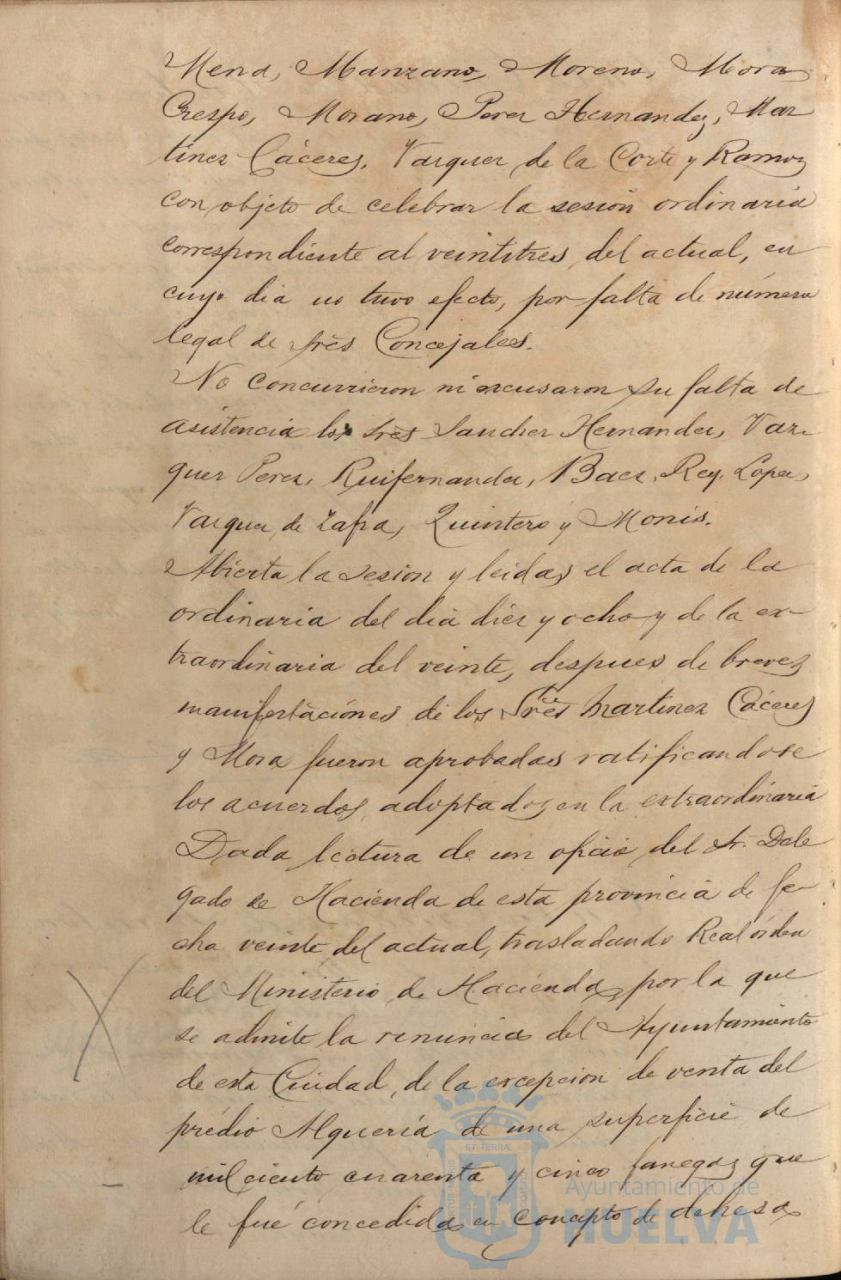 Mena, Manzano, Moreno, Mora
Crespo, Morano, Perez Hernandez, Mar
tinez Cáceres, Vazquez de la Corte y Ramos
con objeto de celebrar la sesión ordinaria
correspondiente al veintitres del actual, en
cuyo dia no tuvo efecto, por falta de número
legal de Sres Concejales.
No concurrieron ni excusaron su falta de
asistencia los Sres Sanchez Hernandez, Vaz-
quez Perez, Ruifernandez, Baez, Rey, Lopez,
Vazquez de Zafra, Quintero y Monis.
Abierta la sesion y leidas el acta de la
ordinaria del dia diez y ocho y de la ex-
traordinaria del veinte, despues de breves
manifestaciónes de los Sres Martinez Cáceres
y Mora fueron aprobadas ratificandose
los acuerdos adoptados en la extraordinaria
Dada lectura de un oficio del Sr. Dele
gado de Hacienda de esta provincia de fe-
cha veinte del actual, trasladando Real órden
del Ministerio de Hacienda por la que
se admite la renuncia del Ayuntamiento
de esta Ciudad, de la excepcion de venta del
prédio Alquería de una superficie de
mil ciento cuarenta y cinco fanegas que
le fué concedida en concepto de dehesa
Ayuntamiento de
HUELVA